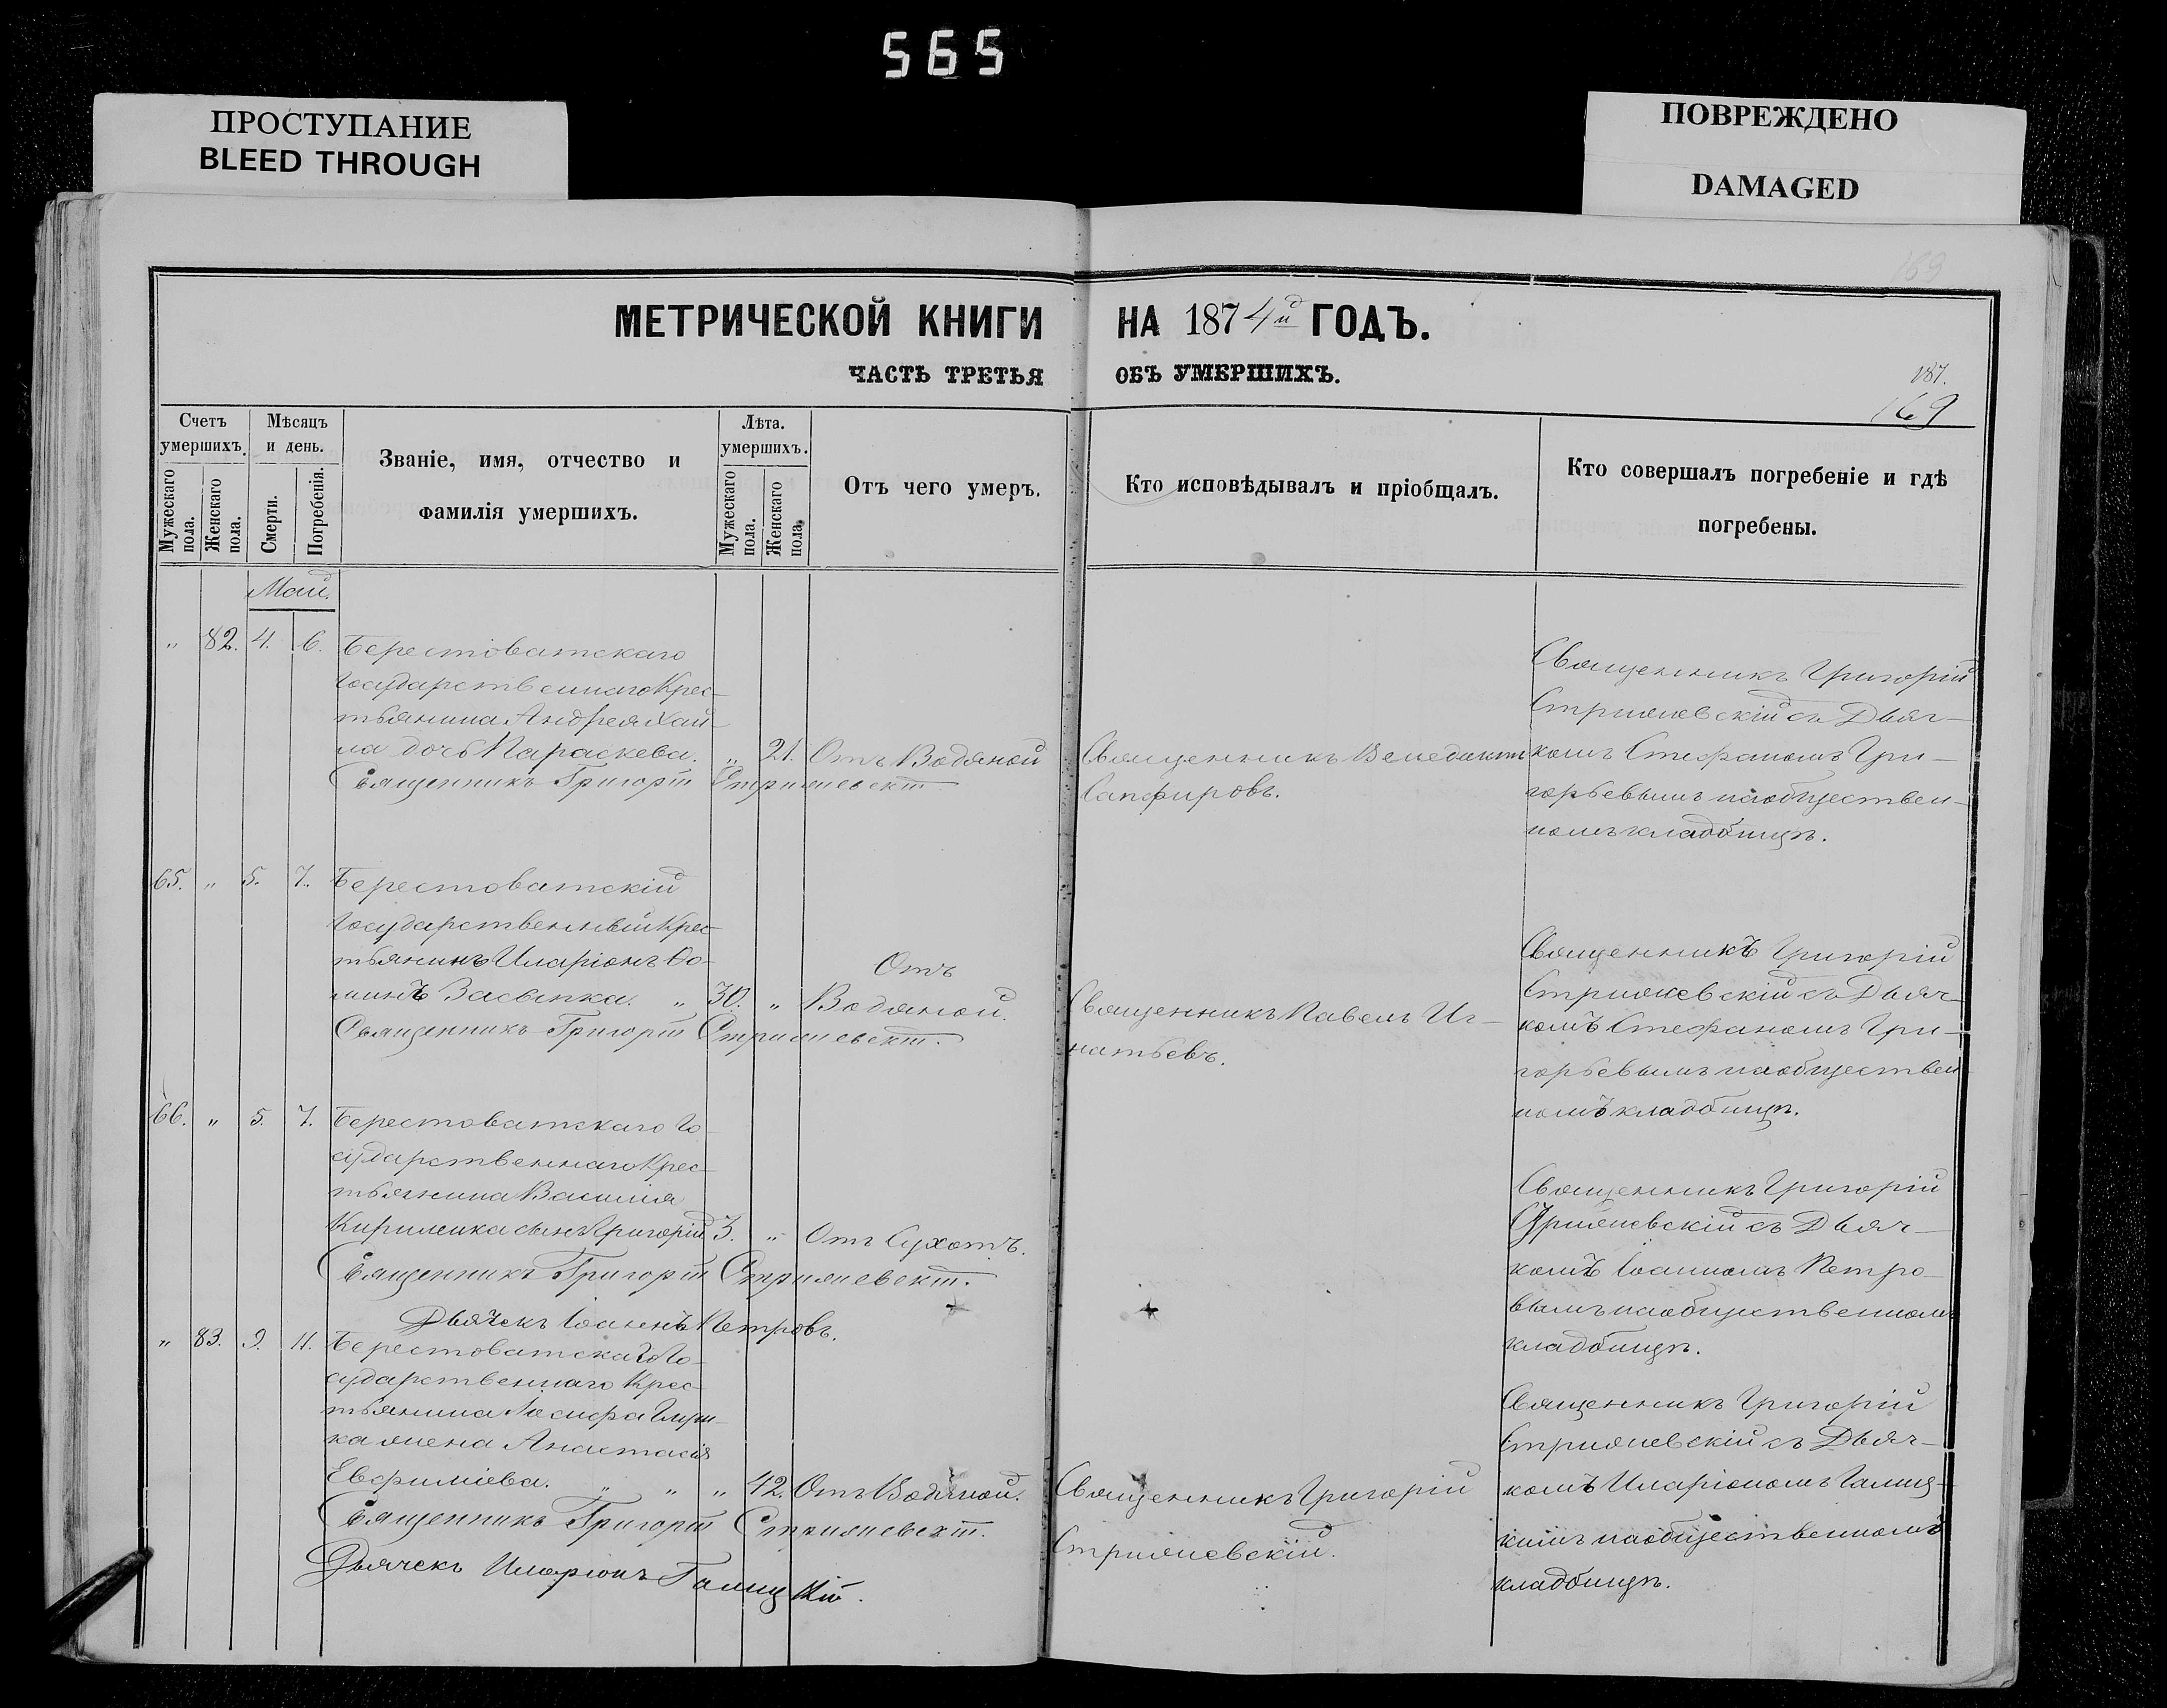 565
ПРОСТУПАНИЕ
BLEED THROUGH
ПОВРЕЖДЕНО
DAMAGED
169
МЕТРИЧЕСКОЙ КНИГИ НА 1874й ГОДЪ.
ЧАСТЬ ТРЕТЬЯ ОБЪ УМЕРШИХЪ.
187.
169
Счетъ умершихъ.
Мужескаго пола.
Женскаго пола.
Мѣсяцъ и день.
Смерти.
Погребенія.
Званіе, имя, отчество и
фамилія умершихъ.
Лѣта. умершихъ.
Мужескаго пола.
Женскаго пола.
Отъ чего умеръ.
Кто исповѣдывалъ и пріобщалъ.
Кто совершалъ погребеніе и гдѣ
погребены.
Май.
„ 82. 4. 6. Берестоватскаго
Государственнаго Крес-
тьянина Андрея
дочь Параскева. „ 21. Отъ Водяной
Священникъ Григорій Стрижевскій
Священникъ Венедиктъ
Сапфировъ.
Священникъ Григорій
Стрижевскій съ Дьяч-
комъ Стефаномъ Гри-
горьевымъ на обществен-
номъ кладбищѣ.
65. „ 5. 7. Берестоватскій
Государственный Крес-
тьянинъ Иларіонъ Ѳо-
минъ Засыпка. „ 30. „ Отъ
Водяной.
Священникъ Григорій Стрижевскій.
Священникъ Павелъ Иг-
натьевъ.
Священникъ Григорій
Стрижевскій съ Дьяч-
комъ Стефаномъ Гри-
горьевымъ на обществен-
номъ кладбищѣ.
66. „ 5. 7. Берестоватскаго Го-
сударственнаго Крес-
тьянина Василія
Кириленка сынъ Григорій 3. „ Отъ Сухотъ.
Священникъ Григорій Стрижевскій.
Дьячекъ Іоаннъ Петровъ.
Священникъ Григорій
Стрижевскій съ Дьяч-
комъ Іоанномъ Петро-
вымъ на общественномъ
кладбищѣ.
„ 83. 9. 11. Берестоватскаго Го-
сударственнаго Крес-
тьянина Іосифа
жена Анастасія
Евфиміева. „ „ „ 42. Отъ Водяной.
Священникъ Григорій Стрижевскій.
Дьячекъ Иларіонъ Галицкій.
Священникъ Григорій
Стрижевскій.
Священникъ Григорій
Стрижевскій съ Дьяч-
комъ Иларіономъ Галиц-
кимъ на общественномъ
кладбищѣ.